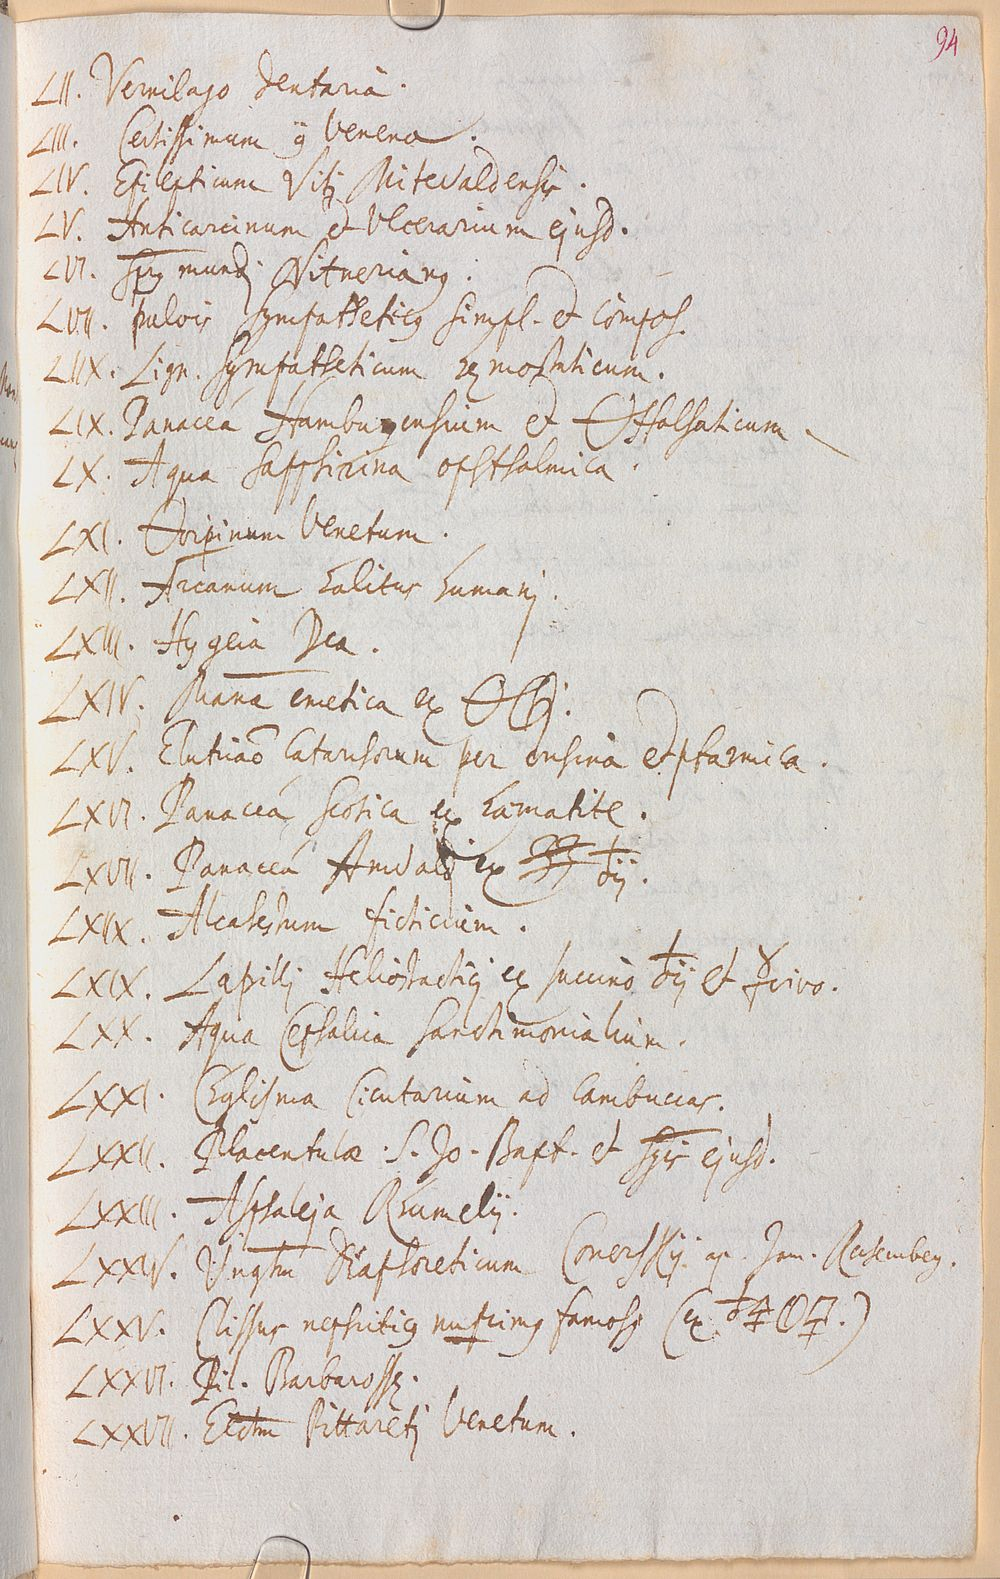 94
LII. Vermilago dentaria.
LIII. Certissimum ÿ Venena.
LIV. Epilepticum Vitj Mitewaldensis.
LV. Anticarcinum et Ulcerarium ejusd.
LVI. Spg mundj Vitneriang.
LVII. pulvis Sympatheticg simpl. et compos.
LIIX. Lign. Sympatheticum remostaticum.
LIX. Panacea Hamburgensium et Holsaticum
LX. Aqua Sapphirina ophthalmica.
LXI. Doripinum Venetum.
LXII. Arcanum halitus humanj.
LXIII. Hygeia Dea.
LXIV. Mana emetica ex
LXV. Elutriao Catarrhorum per errhina et ptarmica.
LXVI. Panacea Scotica ex haematite.
LXVII. Panacea Amwaldj ex
LXIIX. Alcahestum fictitium.
LXIX. Lapillj Heliostacticj ex succino ♄ij et ☿ vivo.
LXX. Aqua Cephalica Sanctimonialium.
LXXI. Ceglisma Cicutarium ad Cambuccas.
LXXII. Placentulae S. Jo. Bapt. et Spis ejusd.
LXXIII. Asphaleja Rhumelij.
LXXIV. Ungtm Diaphoreticum ap. Jom. Rosemberg.
LXXV. Clissus nephriticg famosg (ex
LXXVI. Pil. Barbarossę.
LXXVII. Elctm Pittaretj Venetum.